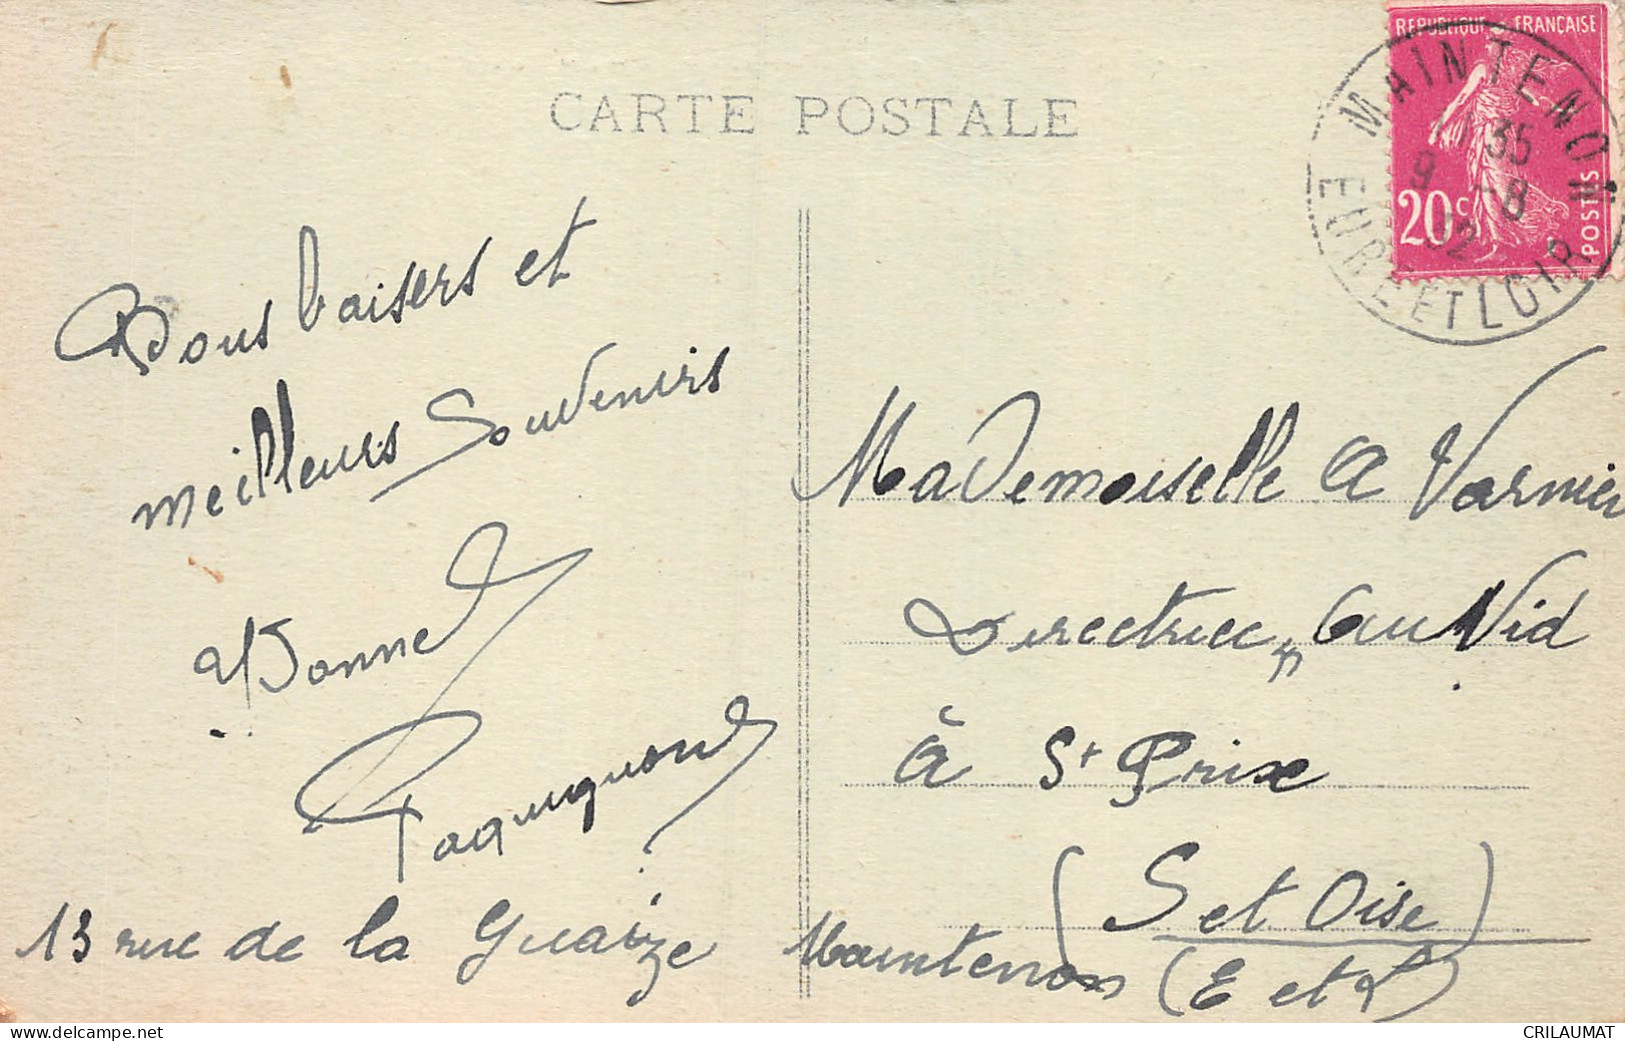 CARTE POSTALE
REPUBLIQUE FRANÇAISE
20c
POSTES
MAINTENON
35
9 -8
32
EURE ET LOIR
Bons baisers et
meilleurs Souvenirs
Yvonne
13 rue de la Guaize Maintenon (E et L)
Mademoiselle A Varnier
Directrice, Au Nid
à St Prix
(S et Oise)
www.delcampe.net
Bonnesaffaires
CRILAUMAT